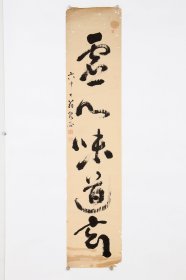 虚心味道玄
六十七翁